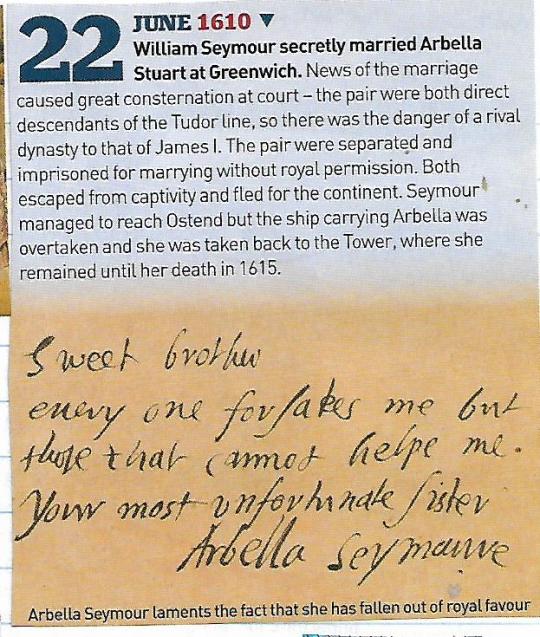 22 JUNE 1610 ▼
William Seymour secretly married Arbella
Stuart at Greenwich. News of the marriage
caused great consternation at court – the pair were both direct
descendants of the Tudor line, so there was the danger of a rival
dynasty to that of James I. The pair were separated and
imprisoned for marrying without royal permission. Both
escaped from captivity and fled for the continent. Seymour
managed to reach Ostend but the ship carrying Arbella was
overtaken and she was taken back to the Tower, where she
remained until her death in 1615.
Sweet brother
euery one forsakes me but
those that cannot helpe me.
Your most vnfortunate sister
Arbella Seymaure
Arbella Seymour laments the fact that she has fallen out of royal favour